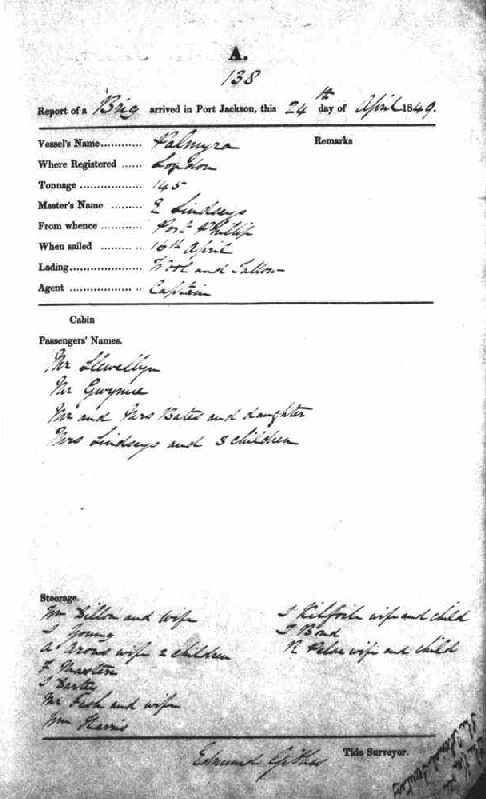 A.
138
Report of a Brig arrived in Port Jackson, this 24th day of April 1849.
Vessel's Name............ Palmyra
Remarks
Where Registered ...... London
Tonnage .................. 145
Master's Name ......... E Lindseys
From whence ............ Port Phillip
When sailed ............ 16th April
Lading..................... Wool and Tallow
Agent ..................... Captain
Cabin
Passengers' Names.
Mr Llewellyn
Mr Gwynne
Mr and Mrs Bates and daughter
Mrs Lindseys and 3 children
Steerage.
Wm Dillon and wife
J Young
wife 2 children
Mr Fish and wife
Wm Harris
wife and child
J Bond
wife and child
Edmund
Tide Surveyor.